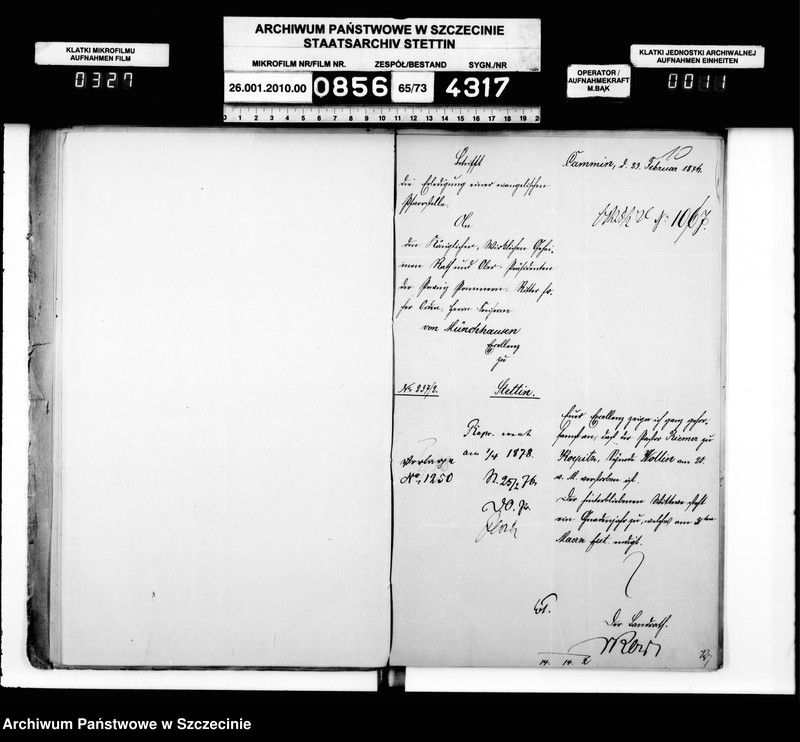 ARCHIWUM PAŃSTWOWE W SZCZECINIE
STAATSARCHIV STETTIN
KLATKI MIKROFILMU
AUFNAHMEN FILM
0327
MIKROFILM NR/FILM NR. ZESPÓŁ/BESTAND SYGN./NR
26.001.2010.00 0856 65/73 4317
OPERATOR /
AUFNAHMEKRAFT
M.BĄK
KLATKI JEDNOSTKI ARCHIWALNEJ
AUFNAHMEN EINHEITEN
0011
0 1 2 3 4 5 6 7 8 9 10 11 12 13 14 15 16 17 18 19 20
10
Cammin, d. 23. Februar 1876.
Betrifft
die Erledigung einer evangelischen
Pfarrstelle.
No 1067.
An
den Königlichen, Wirklichen Gehei-
men Rath und Ober-Präsidenten
der Provinz Pommern, Ritter ho-
her Orden, Herrn Freiherrn
von Münchhausen
Excellenz
zu
Stettin.
No 237/2.
Repr.
am 1/4 1878.
St. 25/2 76.
No 1250
Eure Excellenz zeige ich ganz gehor-
samst an, daß der Pastor Riemer zu
Synode Wollin am 20.
v. M. verstorben ist.
Der hinterbliebenen Wittwe steht
ein Gnadenjahr zu, welches am
Der Landrath.
14. 14. 2
Archiwum Państwowe w Szczecinie